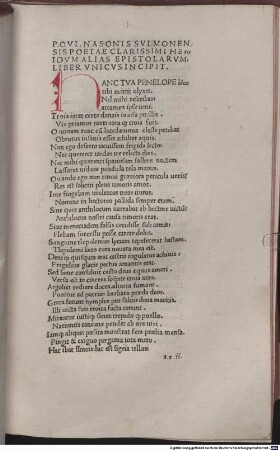 P. OVI. NASONIS SVLMONEN
SIS POETAE CLARISSIMI HE/
IDVM ALIAS EPISTOLARVM.
LIBER VNICVS INCIPIT.
HANC TVA PENELOPE
tibi mittit ulyxes.
Nil mihi rescribas
attamen ipse ueni.
Troia iacet certe danais inuisa puellis.
Vix priamus tanti tota troia fuit.
O utinam tunc cũ lacedæmona classe petebat
Obrutus insanis esset adulter aquis.
Non ego deserto iacuissem frigida lecto
Nec quererer tardos ire relicta dies.
Nec mihi quærenti spatiosam fallere noctem
Lassaret uiduas pendula tela manus.
Quando ego non timui grauiora pericula ueris
Res est soliciti plena timoris amor.
In te fingebam uiolentos troas ituros.
Nomine in hectoreo pallida semper eram.
Siue quis antilochum narrabat ab hectore uictum
Antilochus nostri causa timoris erat.
Siue menœtiaden falsis cecidisse sub armis
Flebam successu posse carere dolos.
Sanguine tlepolemus lyciam tepefecerat hastam.
Tlepolemi leto cura nouata mea est.
Deniq; quisquis erat castris iugulatus achiuis
Frigidius glacie pectus amantis erat.
Sed bene consuluit casto deus equus amori.
Versa est in cineres sospite troia uiro.
Argolici rediere duces altaria fumant.
Ponitur ad patrios barbara præda deos.
Grata ferunt nymphæ pro saluis dona maritis.
Illi uicta suis troica facta canunt.
Mirantur iustiq; senes trepidæq; puellæ.
Narrantis coniunx pendet ab ore uiri.
Iamq; aliquis posita monstrat fera prælia mensa.
Pingit & exiguo pergama tota mero.
Hac ibat simois hic est sigeia tellus
a ii.